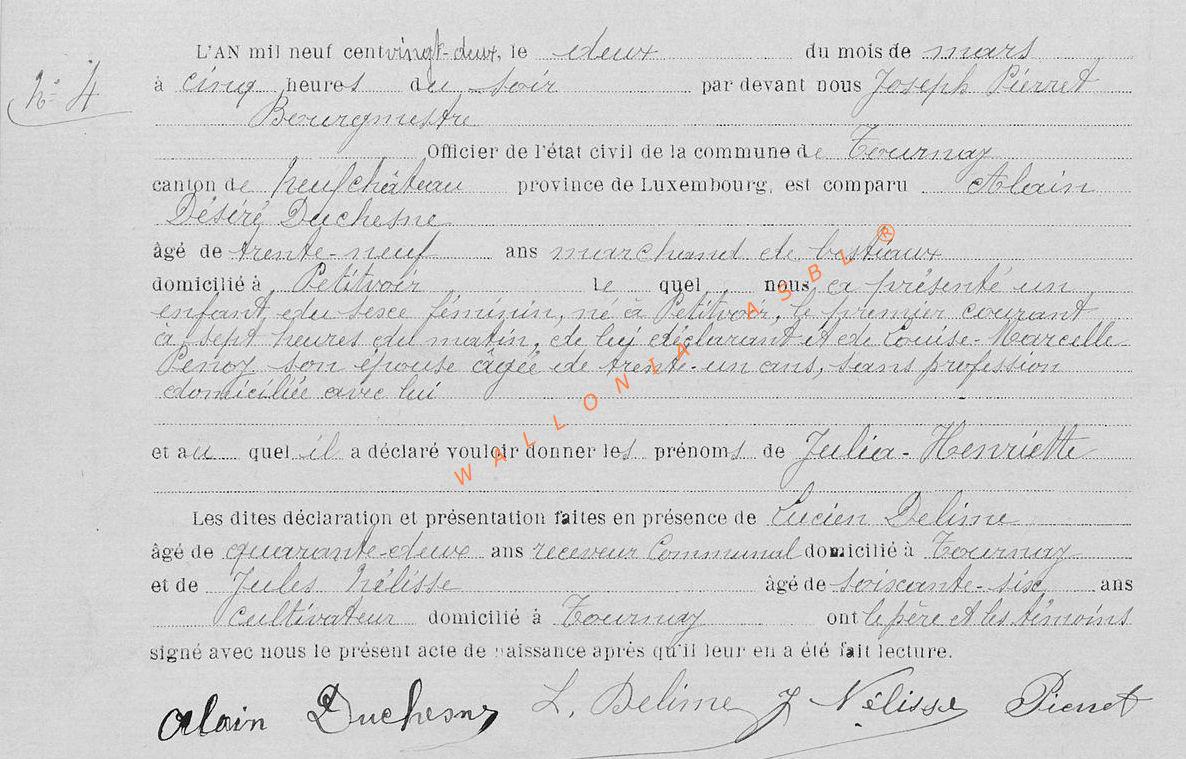 L'AN mil neuf cent vingt-deux, le deux du mois de mars
N° 4
à cinq heures du soir par devant nous Joseph Pierret
Bourgmestre
Officier de l'état civil de la commune de Tournay
canton de Neufchâteau province de Luxembourg, est comparu Alain
Désiré Duchesne
âgé de trente-neuf ans marchand de bestiaux
domicilié à Petitvoir le quel nous a présenté un
enfant, du sexe féminin, né à Petitvoir, le premier courant
à sept heures du matin, de lui déclarant et de Louise-Marcelle
Penoy son épouse âgée de trente-un ans, sans profession
domiciliée avec lui
et au quel il a déclaré vouloir donner les prénoms de Julia-Henriette
Les dites déclaration et présentation faites en présence de Lucien Delime
âgé de quarante-deux ans receveur Communal domicilié à Tournay
et de Jules Nélisse âgé de soixante-six ans
cultivateur domicilié à Tournay ont le père et les témoins
signé avec nous le présent acte de naissance après qu'il leur en a été fait lecture.
Alain Duchesne L. Delime J Nélisse Pierret
WALLONIA ASBL ®